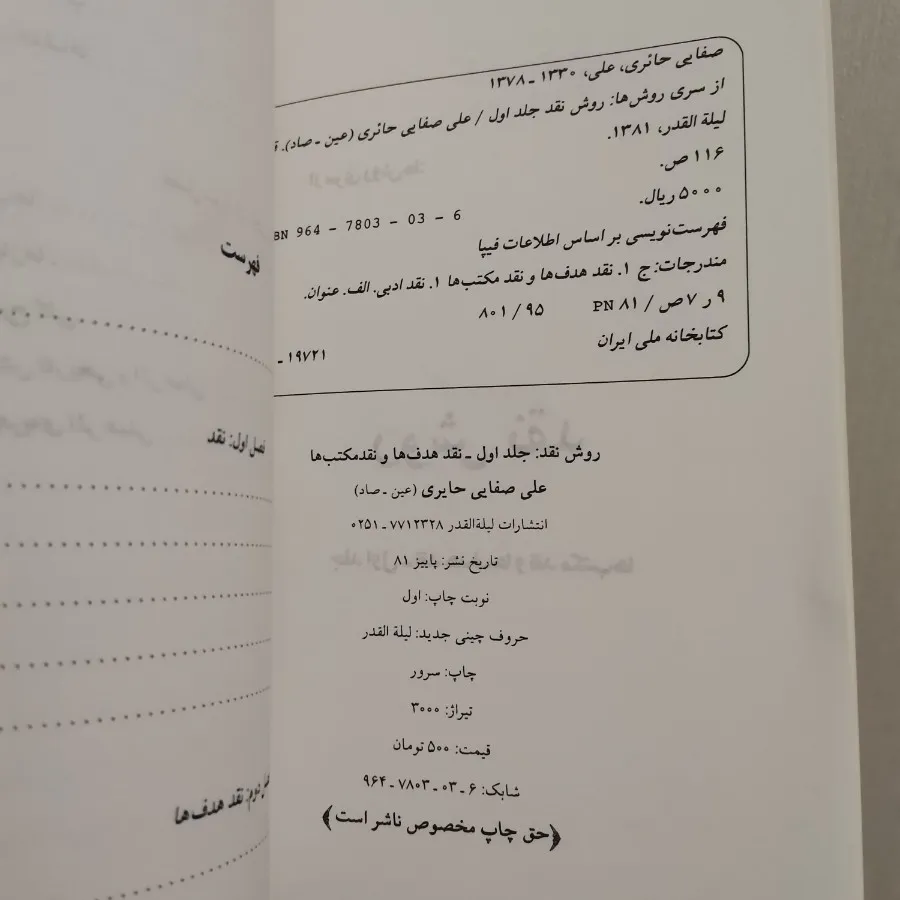 صفایی حائری، علی، ۱۳۳۰ ـ ۱۳۷۸
از سری روش‌ها: روش نقد جلد اول / علی صفایی حائری (عین ـ صاد).
لیلة القدر، ۱۳۸۱.
۱۱۶ ص.
۵۰۰۰ ریال.
BN 964 - 7803 - 03 - 6
فهرست‌نویسی بر اساس اطلاعات فیپا
مندرجات: ج ۱. نقد هدف‌ها و نقد مکتب‌ها ۱. نقد ادبی. الف. عنوان.
۹ ر ۷ ص / PN ۸۱ ۹۵ / ۸۰۱
کتابخانه ملی ایران ۱۹۷۲۱ ـ
روش نقد: جلد اول ـ نقد هدف‌ها و نقدمکتب‌ها
علی صفایی حایری (عین ـ صاد)
انتشارات لیلةالقدر ۷۷۱۲۳۲۸ ـ ۰۲۵۱
تاریخ نشر: پاییز ۸۱
نوبت چاپ: اول
حروف چینی جدید: لیلة القدر
چاپ: سرور
تیراژ: ۳۰۰۰
قیمت: ۵۰۰ تومان
شابک: ۶ ـ ۰۳ ـ ۷۸۰۳ ـ ۹۶۴
﴿حق چاپ مخصوص ناشر است﴾
فهرست
فصل اول: نقد
دوم: نقد هدف‌ها